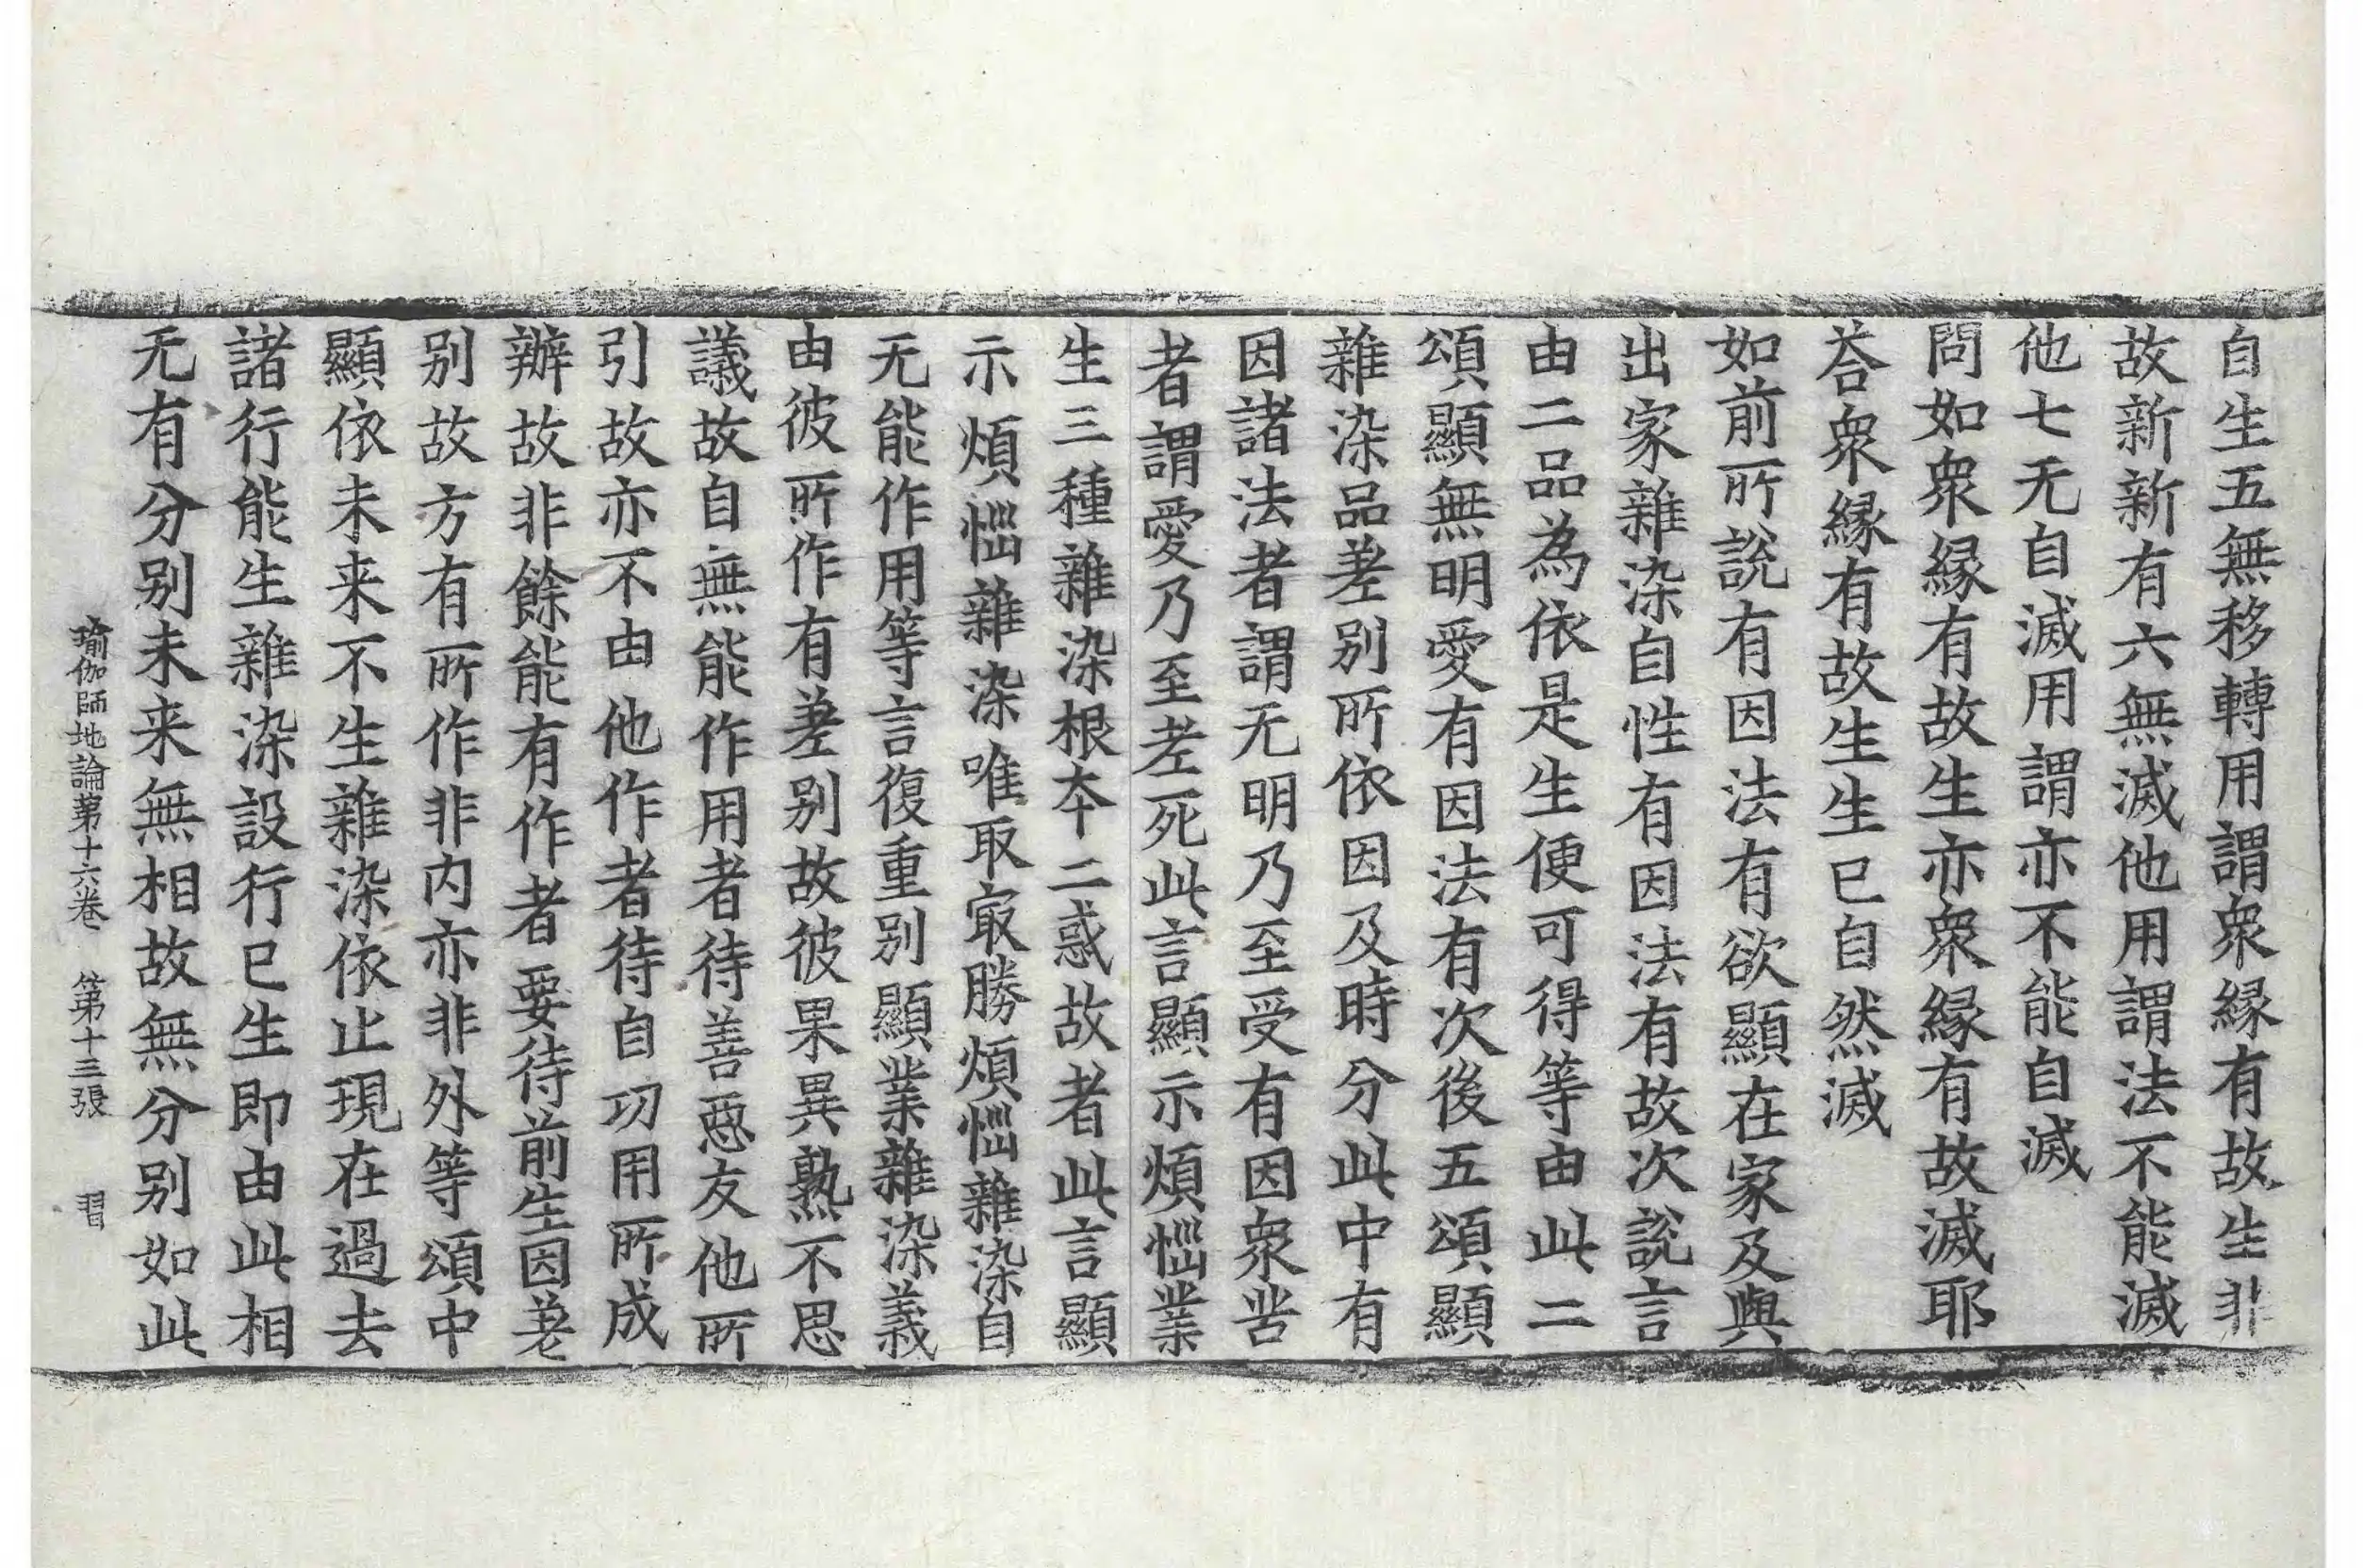 自生五無移轉用謂衆縁有故生非
故新新有六無滅他用謂法不能滅
他七无自滅用謂亦不能自滅
問如衆縁有故生亦衆縁有故滅耶
荅衆縁有故生生已自然滅
如前所說有因法有欲顯在家及與
出家雜染自性有因法有故次說言
由二品為依是生便可得等由此二
頌顯無明愛有因法有次後五頌顯
雜染品差別所依因及時分此中有
因諸法者謂无明乃至受有因衆苦
者謂愛乃至老死此言顯示煩惱業
生三種雜染根本二惑故者此言顯
示煩惱雜染唯取冣勝煩惱雜染自
无能作用等言復重別顯業雜染義
由彼所作有差別故彼果異熟不思
議故自無能作用者待善惡友他所
引故亦不由他作者待自功用所成
辦故非餘能有作者要待前生因差
別故方有所作非内亦非外等頌中
顯依未来不生雜染依止現在過去
諸行能生雜染設行已生即由此相
无有分别未来無相故無分別如此
瑜伽師地論第十六卷 第十三張 習